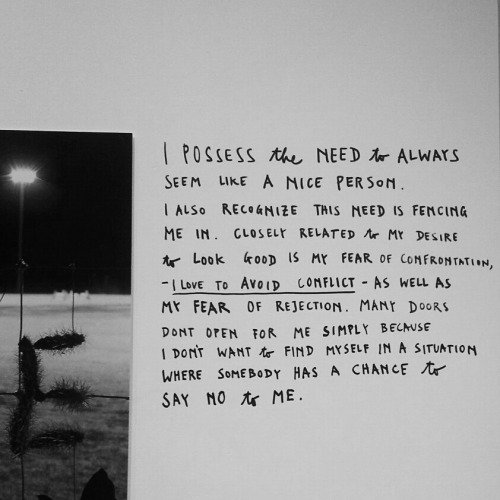 I POSSESS the NEED to ALWAYS
SEEM LIKE A NICE PERSON.
I ALSO RECOGNIZE THIS NEED IS FENCING
ME IN. CLOSELY RELATED to MY DESIRE
to LOOK GOOD IS MY FEAR OF CONFRONTATION,
- I LOVE TO AVOID CONFLICT - AS WELL AS
MY FEAR OF REJECTION. MANY DOORS
DONT OPEN FOR ME SIMPLY BECAUSE
I DON'T WANT to FIND MYSELF IN A SITUATION
WHERE SOMEBODY HAS A CHANCE to
SAY NO to ME.